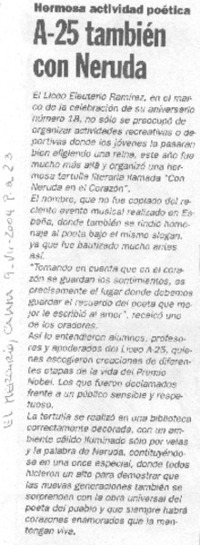 Hermosa actividad poética
A-25 también
con Neruda
El Liceo Eleuterio Ramírez, en el mar-
co de la celebración de su aniversario
número 18, no sólo se preocupó de
organizar actividades recreativas o de-
portivas donde los jóvenes la pasaran
bien eligiendo una reina, este año fue
mucho más allá y organizó una her-
mosa tertulia literaria llamada "Con
Neruda en el Corazón".
El nombre, que no fue copiado del re-
ciente evento musical realizado en Es-
paña, donde también se rindió home-
naje al poeta bajo el mismo slogan,
ya que fue bautizado mucho antes
así.
"Tomando en cuenta que en el cora-
zón se guardan los sentimientos, es
precisamente el lugar donde debemos
guardar el recuerdo del poeta que me-
jor le escribió al amor", recalcó uno
de los oradores.
Así lo entendieron alumnos, profeso-
res y apoderados del Liceo A-25, quie-
nes escogieron creaciones de diferen-
tes etapas de la vida del Premio
Nobel. Los que fueron declamados
frente a un público sensible y respe-
tuoso.
La tertulia se realizó en una biblioteca
correctamente decorada, con un am-
biente cálido iluminado sólo por velas
y la palabra de Neruda, contituyéndo-
se en una once especial, donde todos
hicieron un alto para demostrar que
las nuevas generaciones también se
sorprenden con la obra universal del
poeta del pueblo y que siempre habrá
corazones enamorados que la man-
tengan viva.
El Mercurio, Calama 9-VII-2004 P. 23